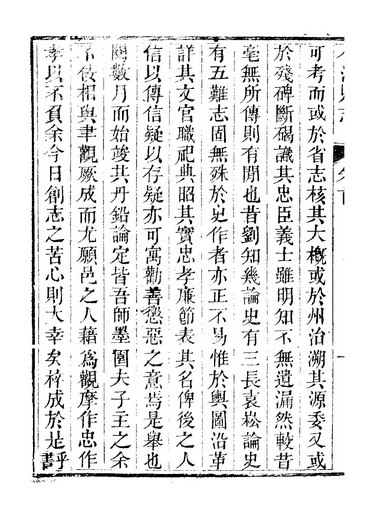 可考而或於省志核其大概或於州治溯其源委又或
於殘碑斷碣識其忠臣義士雖明知不無遺漏然較昔
毫無所傳則有間也昔劉知幾論史有三長袁崧論史
有五難志固無殊於史作者亦正不易惟於輿圖沿革
詳其文官職祀典昭其實忠孝廉節表其名俾後之人
信以傳信疑以存疑亦可寓勸善懲惡之意焉是舉也
閱數月而始竣其丹鉛論定皆吾師墨圃夫子主之余
不佞相與聿觀厥成而尤願邑之人藉為觀摩作忠作
孝以不負余今日創志之苦心則大幸矣梓成於是乎
書